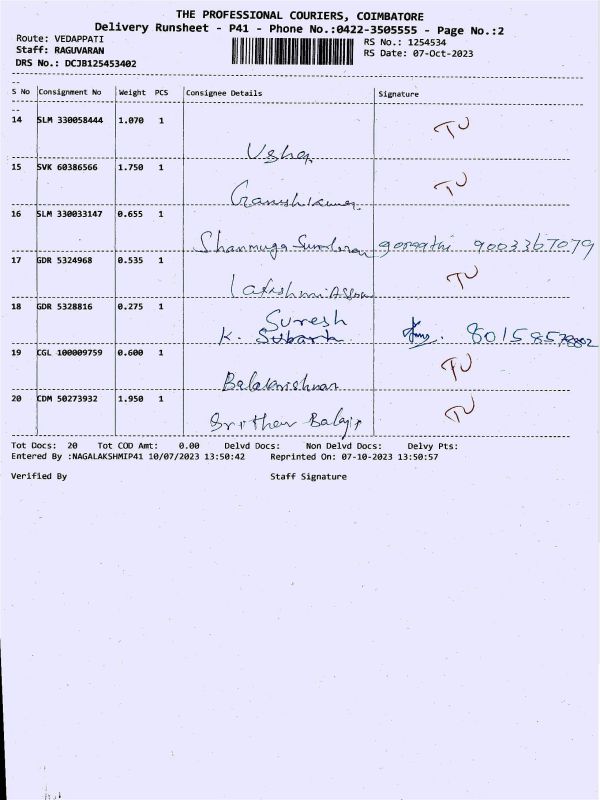 THE PROFESSIONAL COURIERS, COIMBATORE
Delivery Runsheet - P41 - Phone No.:0422-3505555 - Page No.:2
Route: VEDAPPATI
RS No.: 1254534
Staff: RAGUVARAN
RS Date: 07-Oct-2023
DRS No.: DCJB125453402
S No Consignment No Weight PCS Consignee Details Signature
14 SLM 330058444 1.070 1 TU
Usha
15 SVK 60386566 1.750 1 TU
Ganeshkumar
16 SLM 330033147 0.655 1
Shanmuga Sundaran 9003367079
17 GDR 5324968 0.535 1 TU
Lakshmi
18 GDR 5328816 0.275 1
Suresh
K. 8015857
19 CGL 100009759 0.600 1 TU
Balakrishnan
20 CDM 50273932 1.950 1 TU
Balaji
Tot Docs: 20 Tot COD Amt: 0.00 Delvd Docs: Non Delvd Docs: Delvy Pts:
Entered By :NAGALAKSHMIP41 10/07/2023 13:50:42 Reprinted On: 07-10-2023 13:50:57
Verified By Staff Signature